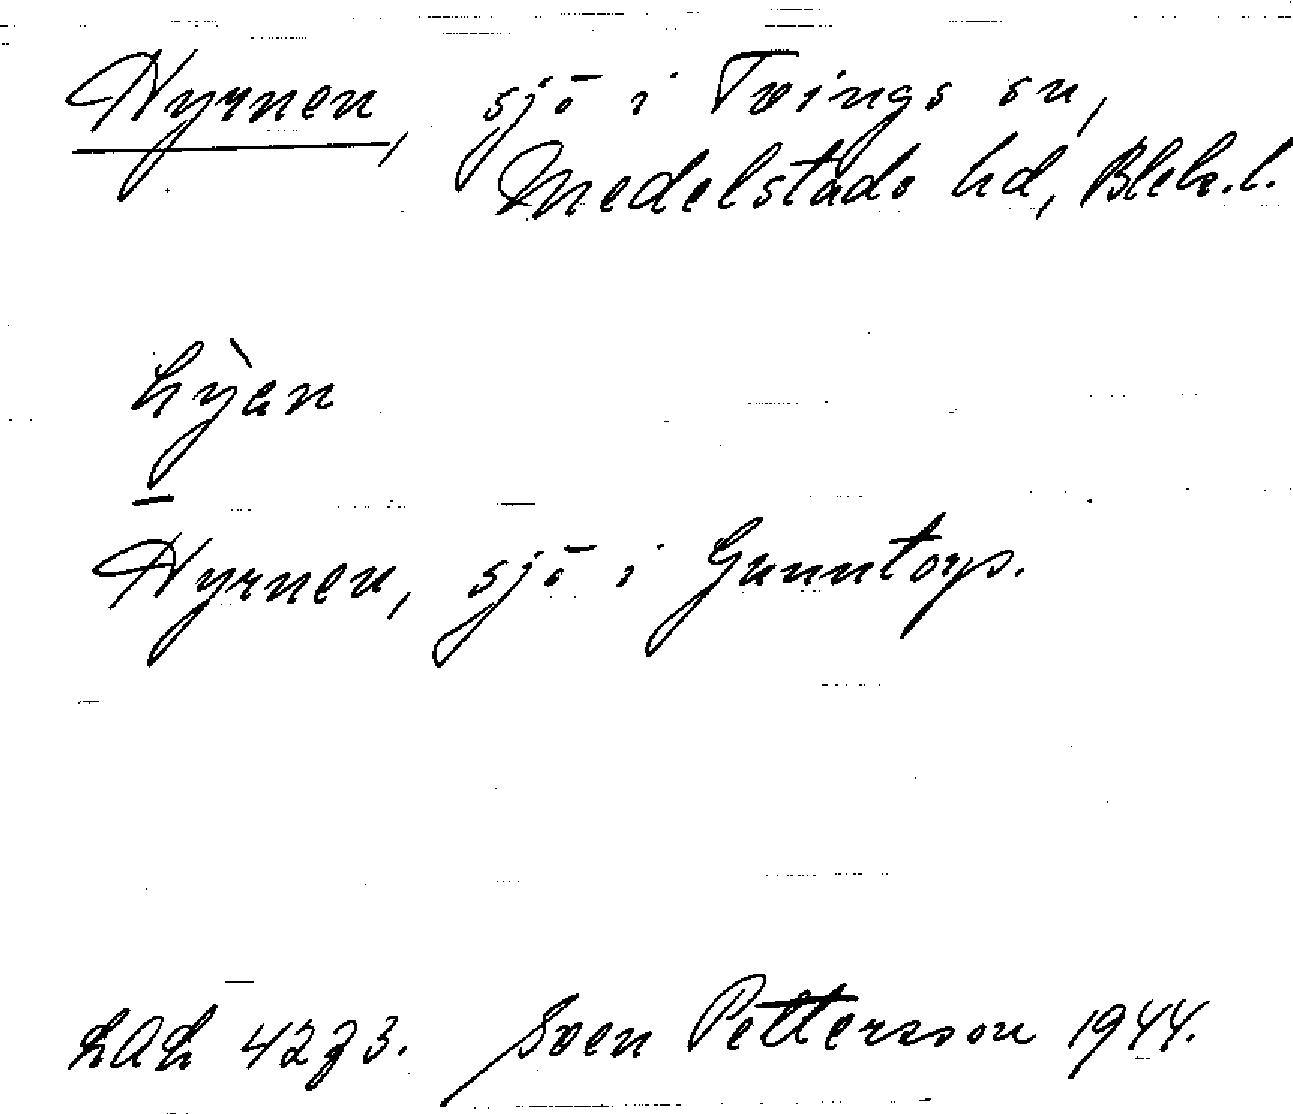 Hyrnen, sjö i Tvings sn,
Medelstads hd, Blek. l.
hy̆̀an
Hyrnen, sjö i Gunntorp.
LAL 4273. Sven Pettersson 1944.